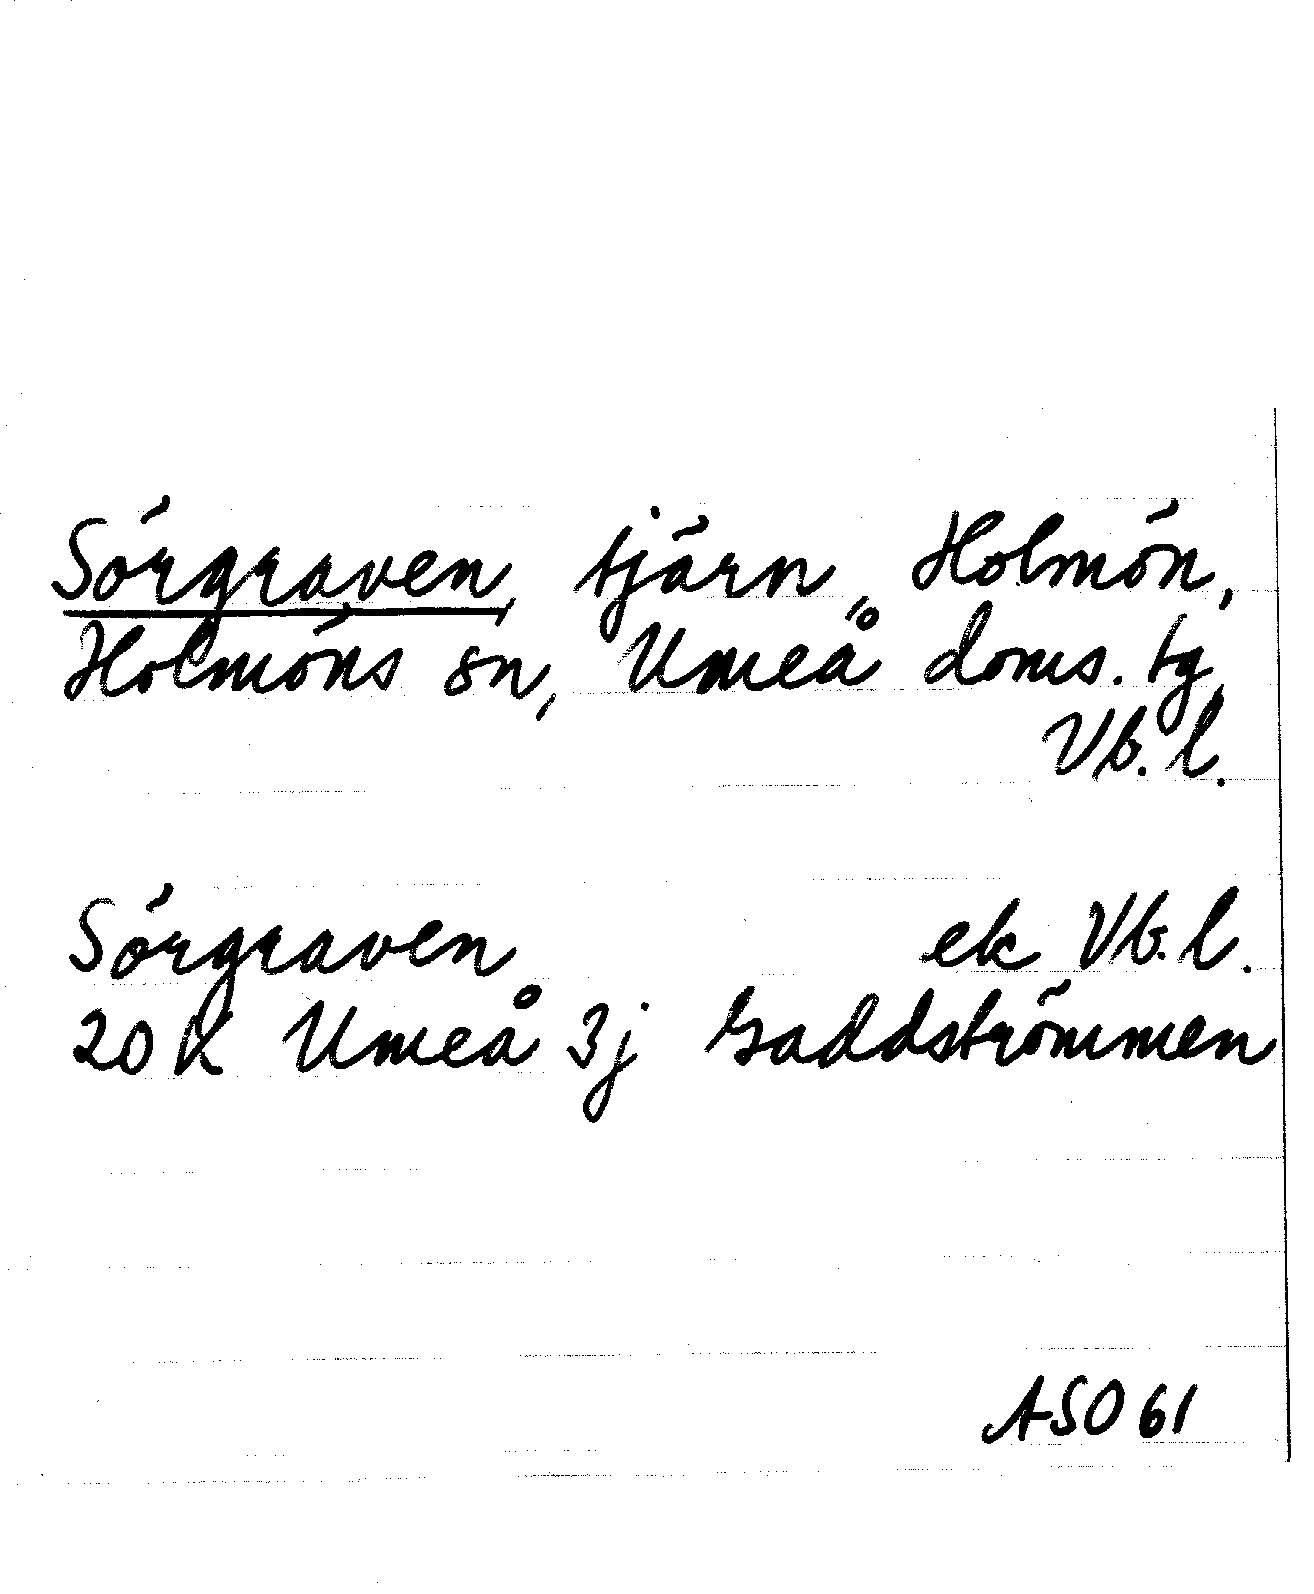 Sörgraven, tjärn, Holmön,
Holmöns sn, Umeå doms. tg,
Vb. l.
Sörgraven ek Vb. l.
20 K Umeå 3j Gaddströmmen
ASO 61